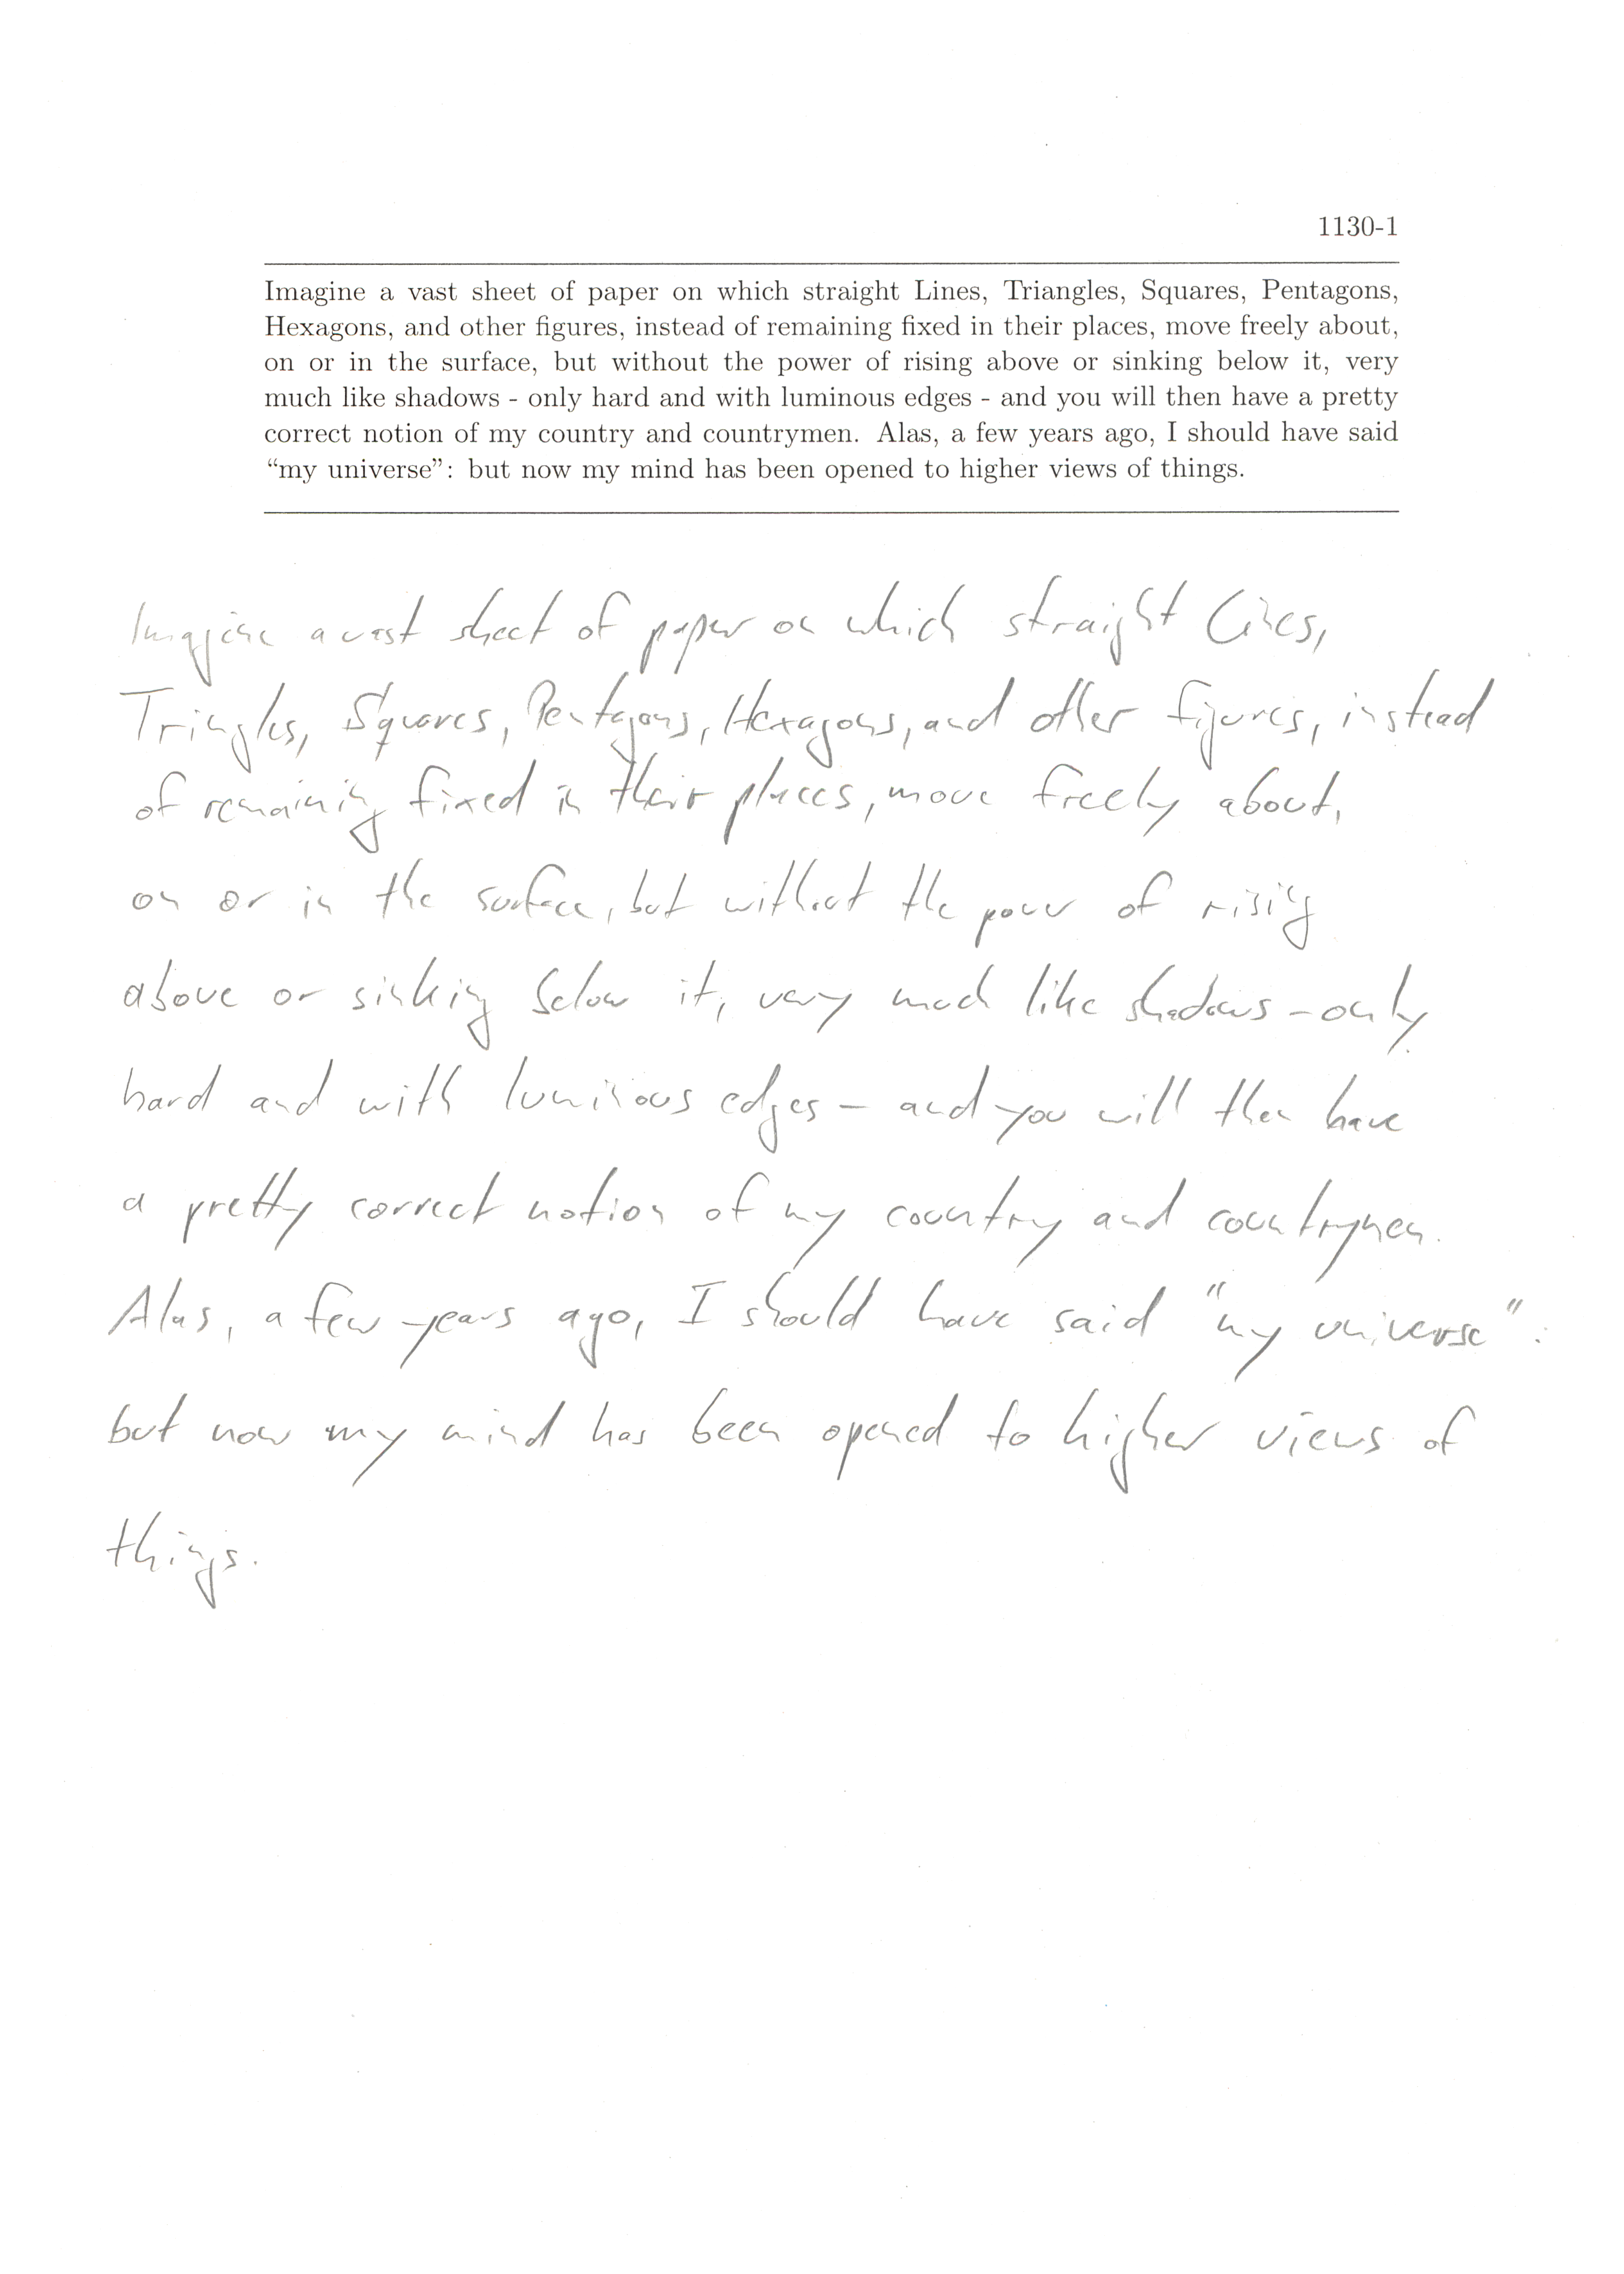 1130-1
Imagine a vast sheet of paper on which straight Lines, Triangles, Squares, Pentagons,
Hexagons, and other figures, instead of remaining fixed in their places, move freely about,
on or in the surface, but without the power of rising above or sinking below it, very
much like shadows - only hard and with luminous edges - and you will then have a pretty
correct notion of my country and countrymen. Alas, a few years ago, I should have said
“my universe”: but now my mind has been opened to higher views of things.
Imagine a vast sheet of paper on which straight Lines,
Triangles, Squares, Pentagons, Hexagons, and other figures, instead
of remaining fixed in their places, move freely about,
on or in the surface, but without the power of rising
above or sinking below it, very much like shadows - only
hard and with luminous edges - and you will then have
a pretty correct notion of my country and countrymen.
Alas, a few years ago, I should have said "my universe":
but now my mind has been opened to higher views of
things.